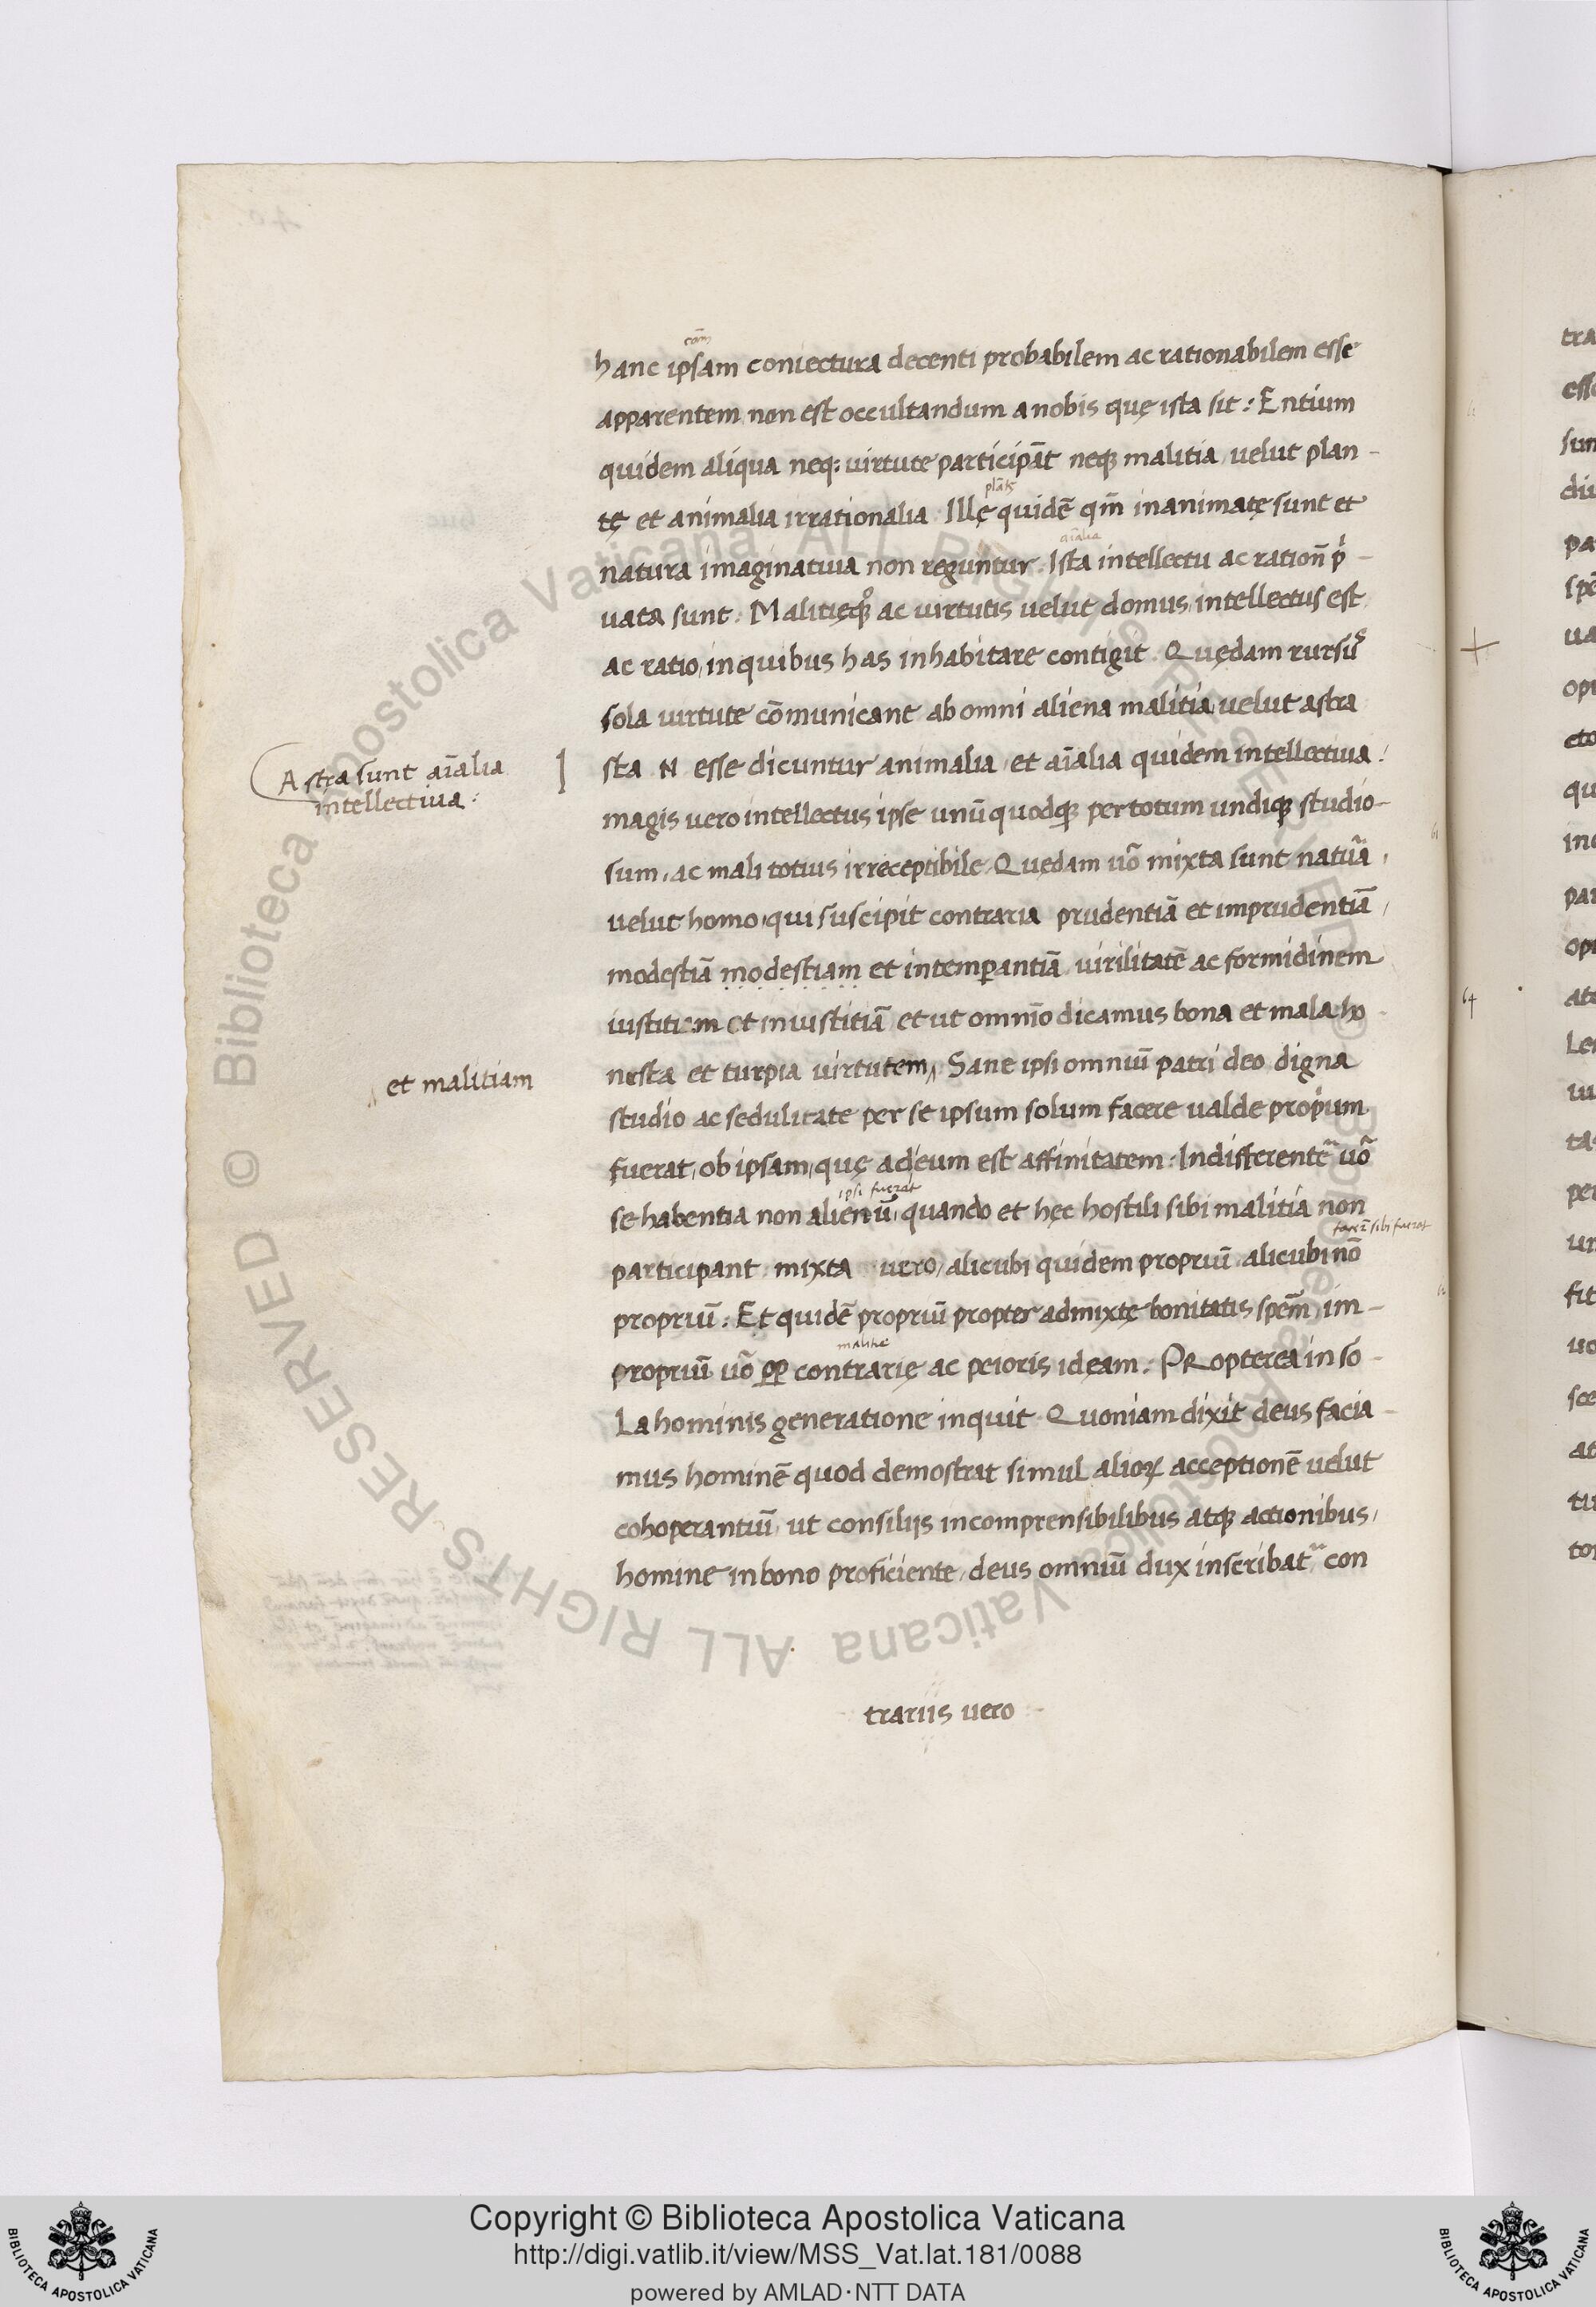 cām
hanc ipsam coniectura decenti probabilem ac rationabilem esse
apparentem non est occultandum a nobis quę ista sit: Entium
quidem aliqua neq; virtute participāt neq; malitia velut plan-
plātę
tę et animalia irrationalia. Illę quidē qm̄ inanimatę sunt et
aīalia
natura imaginatiua non reguntur. Ista intellectu ac ration̄ p̍-
uata sunt. Malitięq̊; ac virtutis velut domus intellectus est
ac ratio, in quibus has inhabitare contigit. Quędam rursū
sola virtute cōmunicant ab omni aliena malitia velut astra
sta N esse dicuntur animalia et aīalia quidem intellectiua:
Astra sunt aīalia
intellectiua:
magis vero intellectus ipse unūquodq; per totum undiq; studio-
sum, ac mali totius irreceptibile. Quędam uō mixta sunt natūa,
velut homo, qui suscipit contraria prudentiā et imprudentiā,
modestiā modestiam et intemperantiā virilitatē ac formidinem
iustitiam et iniustitiā et ut omnīo dicamus bona et mala ho-
nesta et turpia virtutem, Sane ipsi omniū patri deo digna
et malitiam
studio ac sedulitate per se ipsum solum facere ualde prop̍um
fuerat, ob ipsam, quę ad eum est affinitatem. Indifferentē uō
ipsi fuerat
se habentia non alienū, quando et hęc hostili sibi malitia non
sibi fuerat
participant. mixta vero, alicubi quidem propriū alicubi nō
propriū: Et quidē propriū propter admixtę bonitatis spēm, im-
malitię
propriū uō pp contrarię ac peioris ideam: PRopterea in so-
la hominis generatione inquit. Quoniam dixit deus facia-
mus hominē quod demostrat simul alioꝝ acceptionē velut
cohoperantiū ut consiliis incomprensibilibus atq; actionibus,
homine in bono proficiente, deus omniū dux inscribat̃ con
trariis vero
64
Copyright © Biblioteca Apostolica Vaticana
http://digi.vatlib.it/view/MSS_Vat.lat.181/0088
powered by AMLAD·NTT DATA
BIBLIOTECA APOSTOLICA VATICANA
BIBLIOTECA APOSTOLICA VATICANA
© Biblioteca Apostolica Vaticana ALL RIGHTS RESERVED
© Biblioteca Apostolica Vaticana ALL RIGHTS RESERVED